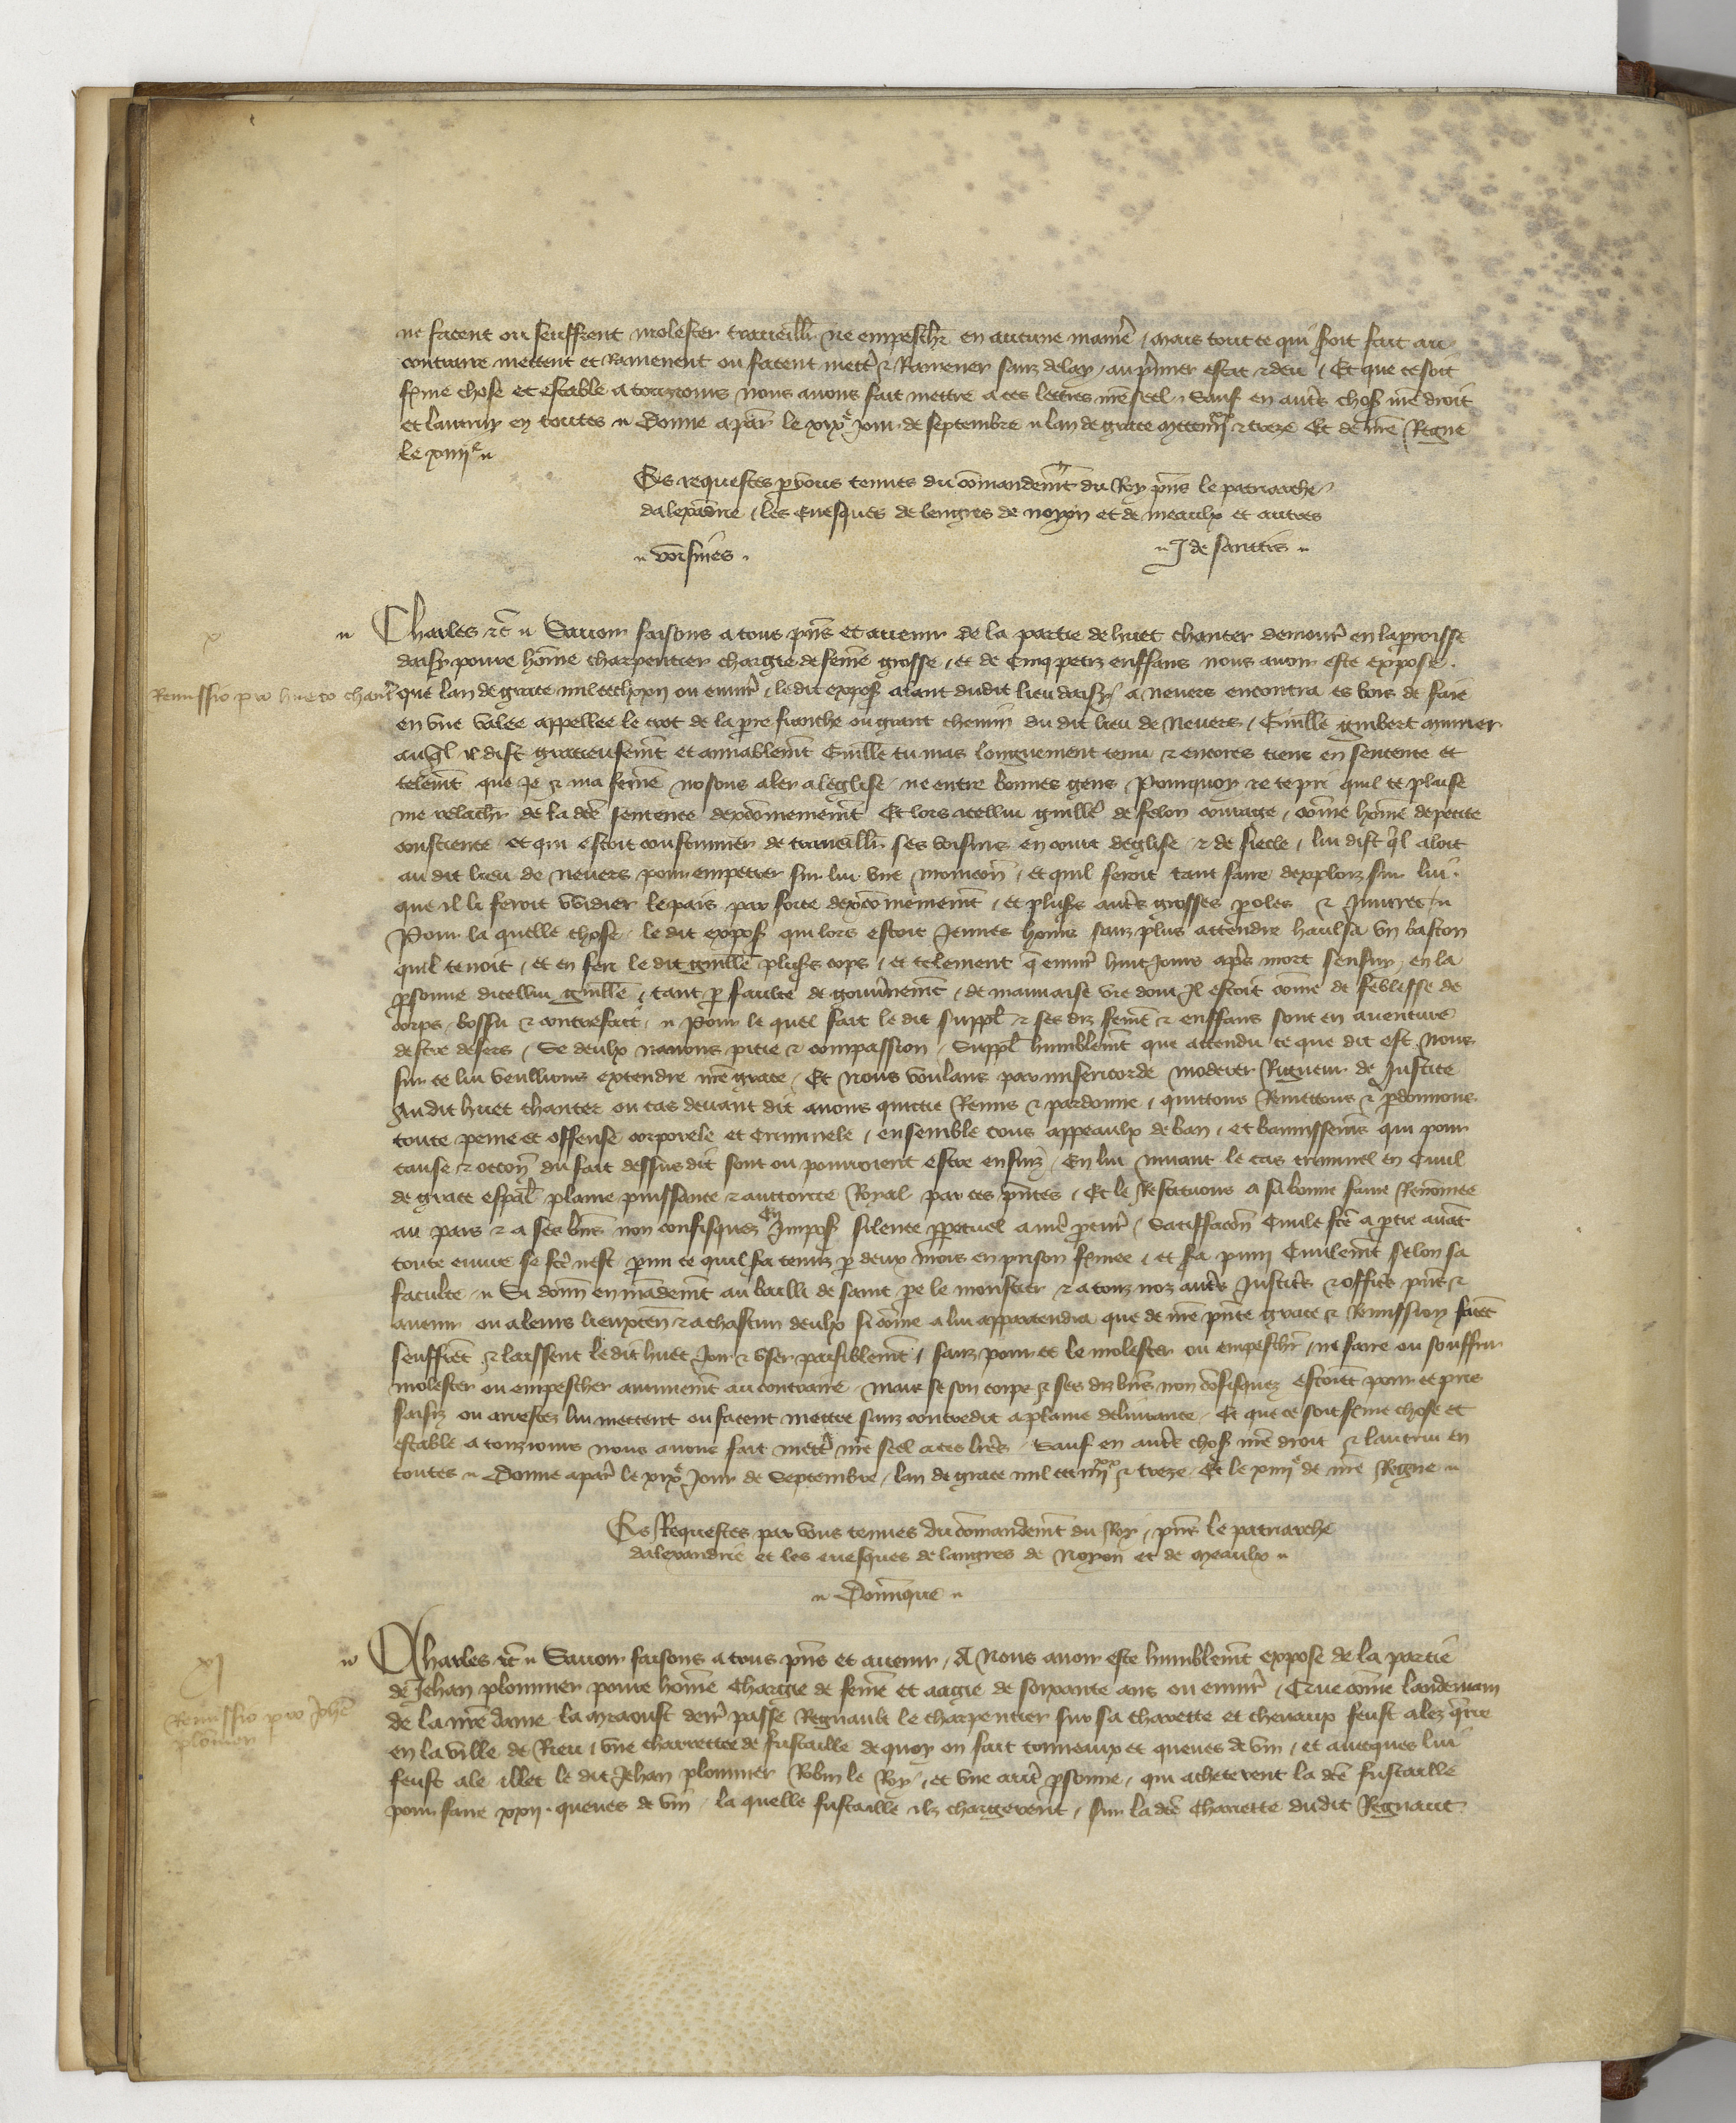 ne facent ou seuffrent molester traveill̄ ne empeschr̄ en aucune manie͂ , mais tout ce qui soit fait au
contraire mettent et Ramenent ou facent mett᷑ & Ramener sanz delay , au p̄mier estat & deu , Et que ce soit
f̄me chose et estable a tousiours nous avons fait mettre a ces lettres nr̄e seel , Sauf en aut᷑s chos̄ nr̄e droit
et lautruy en toutes Donne a par̄ le xixe Jour de Septembre lan de grace mil ccc iiiixx & treze Et de nr̄e Regne
le xiiiie
Es requestes p̄ vous tenues du co͂mandem̄t du Roy p̄ns le patriarche
dalexādrie , les Evesques de lengres de noyon et de meaulx et autres
J de sanctis
Charles &c̄ Savoir faisons a tous p̄ns et avenir De la partie de huet chanter demour̄ en la proisse
daisy povre ho͂me charpentier chargie de fem̄e grosse , et de Cinq petiz enffans nous avoir este expose
Remissio pro hueto chant᷑
que lan de grace mil ccc lxxxii ou envir̄ , ledit expos̄ alant dudit lieu daisy a nevers encontra es bois de faie
en une valee appellee le crot de la pr̄e franche ou grant chemin du dit lieu de Nevers , Guille͂ guibert
auql̄ il dist gracieusem̄t et amiablem̄t Guille͂ tu mas longuement tenu & encores tiens en sentence et
telem̄t que Je & ma fem̄e nosons aler a leglise ne entre bonnes gens Pourquoy Je te pri quil te plaise
me relachr̄ de la dc̄e sentence dexco͂mem̄t Et lors icellui guille᷑ de felon courage , co͂me ho͂me de petite
conscience et qui estoit coustumier de travaill̄ ses voisins en court deglise & de siecle , lui dist ql̄ aloit
au dit lieu de nevers pour empetrer sur lui une monicōn , et quil feroit tant faire dexploiz sur lui
que il li feroit vuidier le pais par force dexco͂mem̄t , et plus̄s aut᷑s grosses p̄oles & Iniures
Pour la quelle chose le dit expos̄ qui lors estoit Jeunes homs sanz plus attendre haulsa un baston
quil tenoit , et en feri le dit guille͂ plus̄s cops , et telement q̄ envir̄ huit Jours ap᷑s mort sensuy en la
p̄sonne dicellui guille͂ , tant p̄ faulte de gouv̄nem̄t , de mauvaise vie dont Il estoit co͂me de feblesse de
corps bossu & contrefait Pour le quel fait le dit suppl̄ & ses diz fem̄e & enffans sont en aventure
destre desers , Se deulx navons pitie & compassion , Suppl̄ humblem̄t que attendu ce que dit est Nous
sur ce lui veullions extendre nr̄e grace , Et Nous voulans par misericorde moderer Rigueur de Justice
Au dit huet chanter ou cas devant dit avons quictie Remis & pardonne , quittons Remittons & p̄donnons
toute peine et offense corporele et Criminele , ensemble tous appeaulx de ban , et bannissem̄s qui pour
cause & occōn du fait dessus dit sont ou pourroient estre ensuiz , En lui muant le cas criminel en Civil
de grace espāl plaine puissance & auctorite Royal par ces p̄ntes , Et le Restituons a sa bonne fame Reno͂mee
au pais & a ses bn̄s non confisquez En Impos̄ silence pp̄etuel a nr̄e p̄cur̄ , Satiffacōn Civile fc̄e a p̄tie avāt
toute euvre se fc̄e nest parmi ce quil sa tenuz p̄ deux mois en prison f̄mee , et sa puni Civilem̄t selon sa
faculte Si donn̄ en mādem̄t au bailli de saint pe᷑ le monstier & a touz noz aut᷑s Justic̄s & offic̄s p̄ns &
avenir ou a leurs lieuxten̄ & a chascun deulx si co͂me a lui appartendra que de nr̄e p̄nte grace & Remission facēt
seuffrēt & laissent le dit huet Joir & user paisiblem̄t , sanz pour ce le molester ou empeschr̄ , ne faire ou souffrir
molester ou empescher aucunem̄t au contraire mais se son corps & ses diz bn̄s non co͂fisquez estoiēt pour ce pris
saisiz ou arrestez lui mettent ou facent mettre sanz contredit a plaine delivrance , Et que ce soit f̄me chose et
estable a touzjours nous avons fait mett᷑ nr̄e seel a ces l̄res , Sauf en aut᷑s chos̄ nr̄e droit & lautrui en
toutes Donne a par̄ le xixe Jour de Septembre , lan de grace mil ccc iiiixx & treze , Et le xiiiie de nr̄e Regne
Es Requestes par vous tenues du co͂mandem̄t du Roy , p̄ns le patriarche
dalexandrie et les evesques de langres de Noyon et de Meaulx
Do͂inique
xi
Charles &c̄ Savoir faisons a tous p̄ns et avenir , A Nous avoir este humblem̄t expose de la partie
de Jehan plommer povre ho͂me Chargie de fem̄e et aagie de soixante ans ou envir̄ , Que co͂me landemain
Remissio pro Joh̄e
plom̄er
de la nr̄e dame la Meaoust der̄r passe Regnault le charpentier sur sa charette et chevaux feust alez q̄rre
en la ville de Rieu , une charrettee de fustaille de quoy on fait tonneaux et queues de vin , et avecques lui
feust ale illec le dit Jehan plommer Robin le Roy , et une aut᷑ p̄sonne , qui acheterent la dc̄e fustaille
pour faire xxii queues de vin , la quelle fustaille ilz chargerent , sur la dc̄e Charrette dudit Regnaut